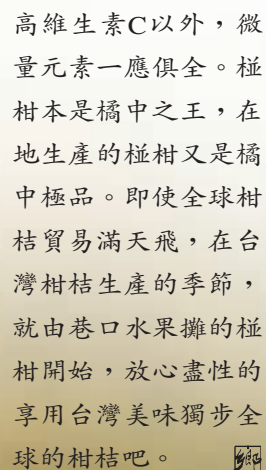 高維生素C以外，微
量元素一應俱全。椪
柑本是橘中之王，在
地生產的椪柑又是橘
中極品。即使全球柑
桔貿易滿天飛，在台
灣柑桔生產的季節，
就由巷口水果攤的椪
柑開始，放心盡性的
享用台灣美味獨步全
球的柑桔吧。鄉